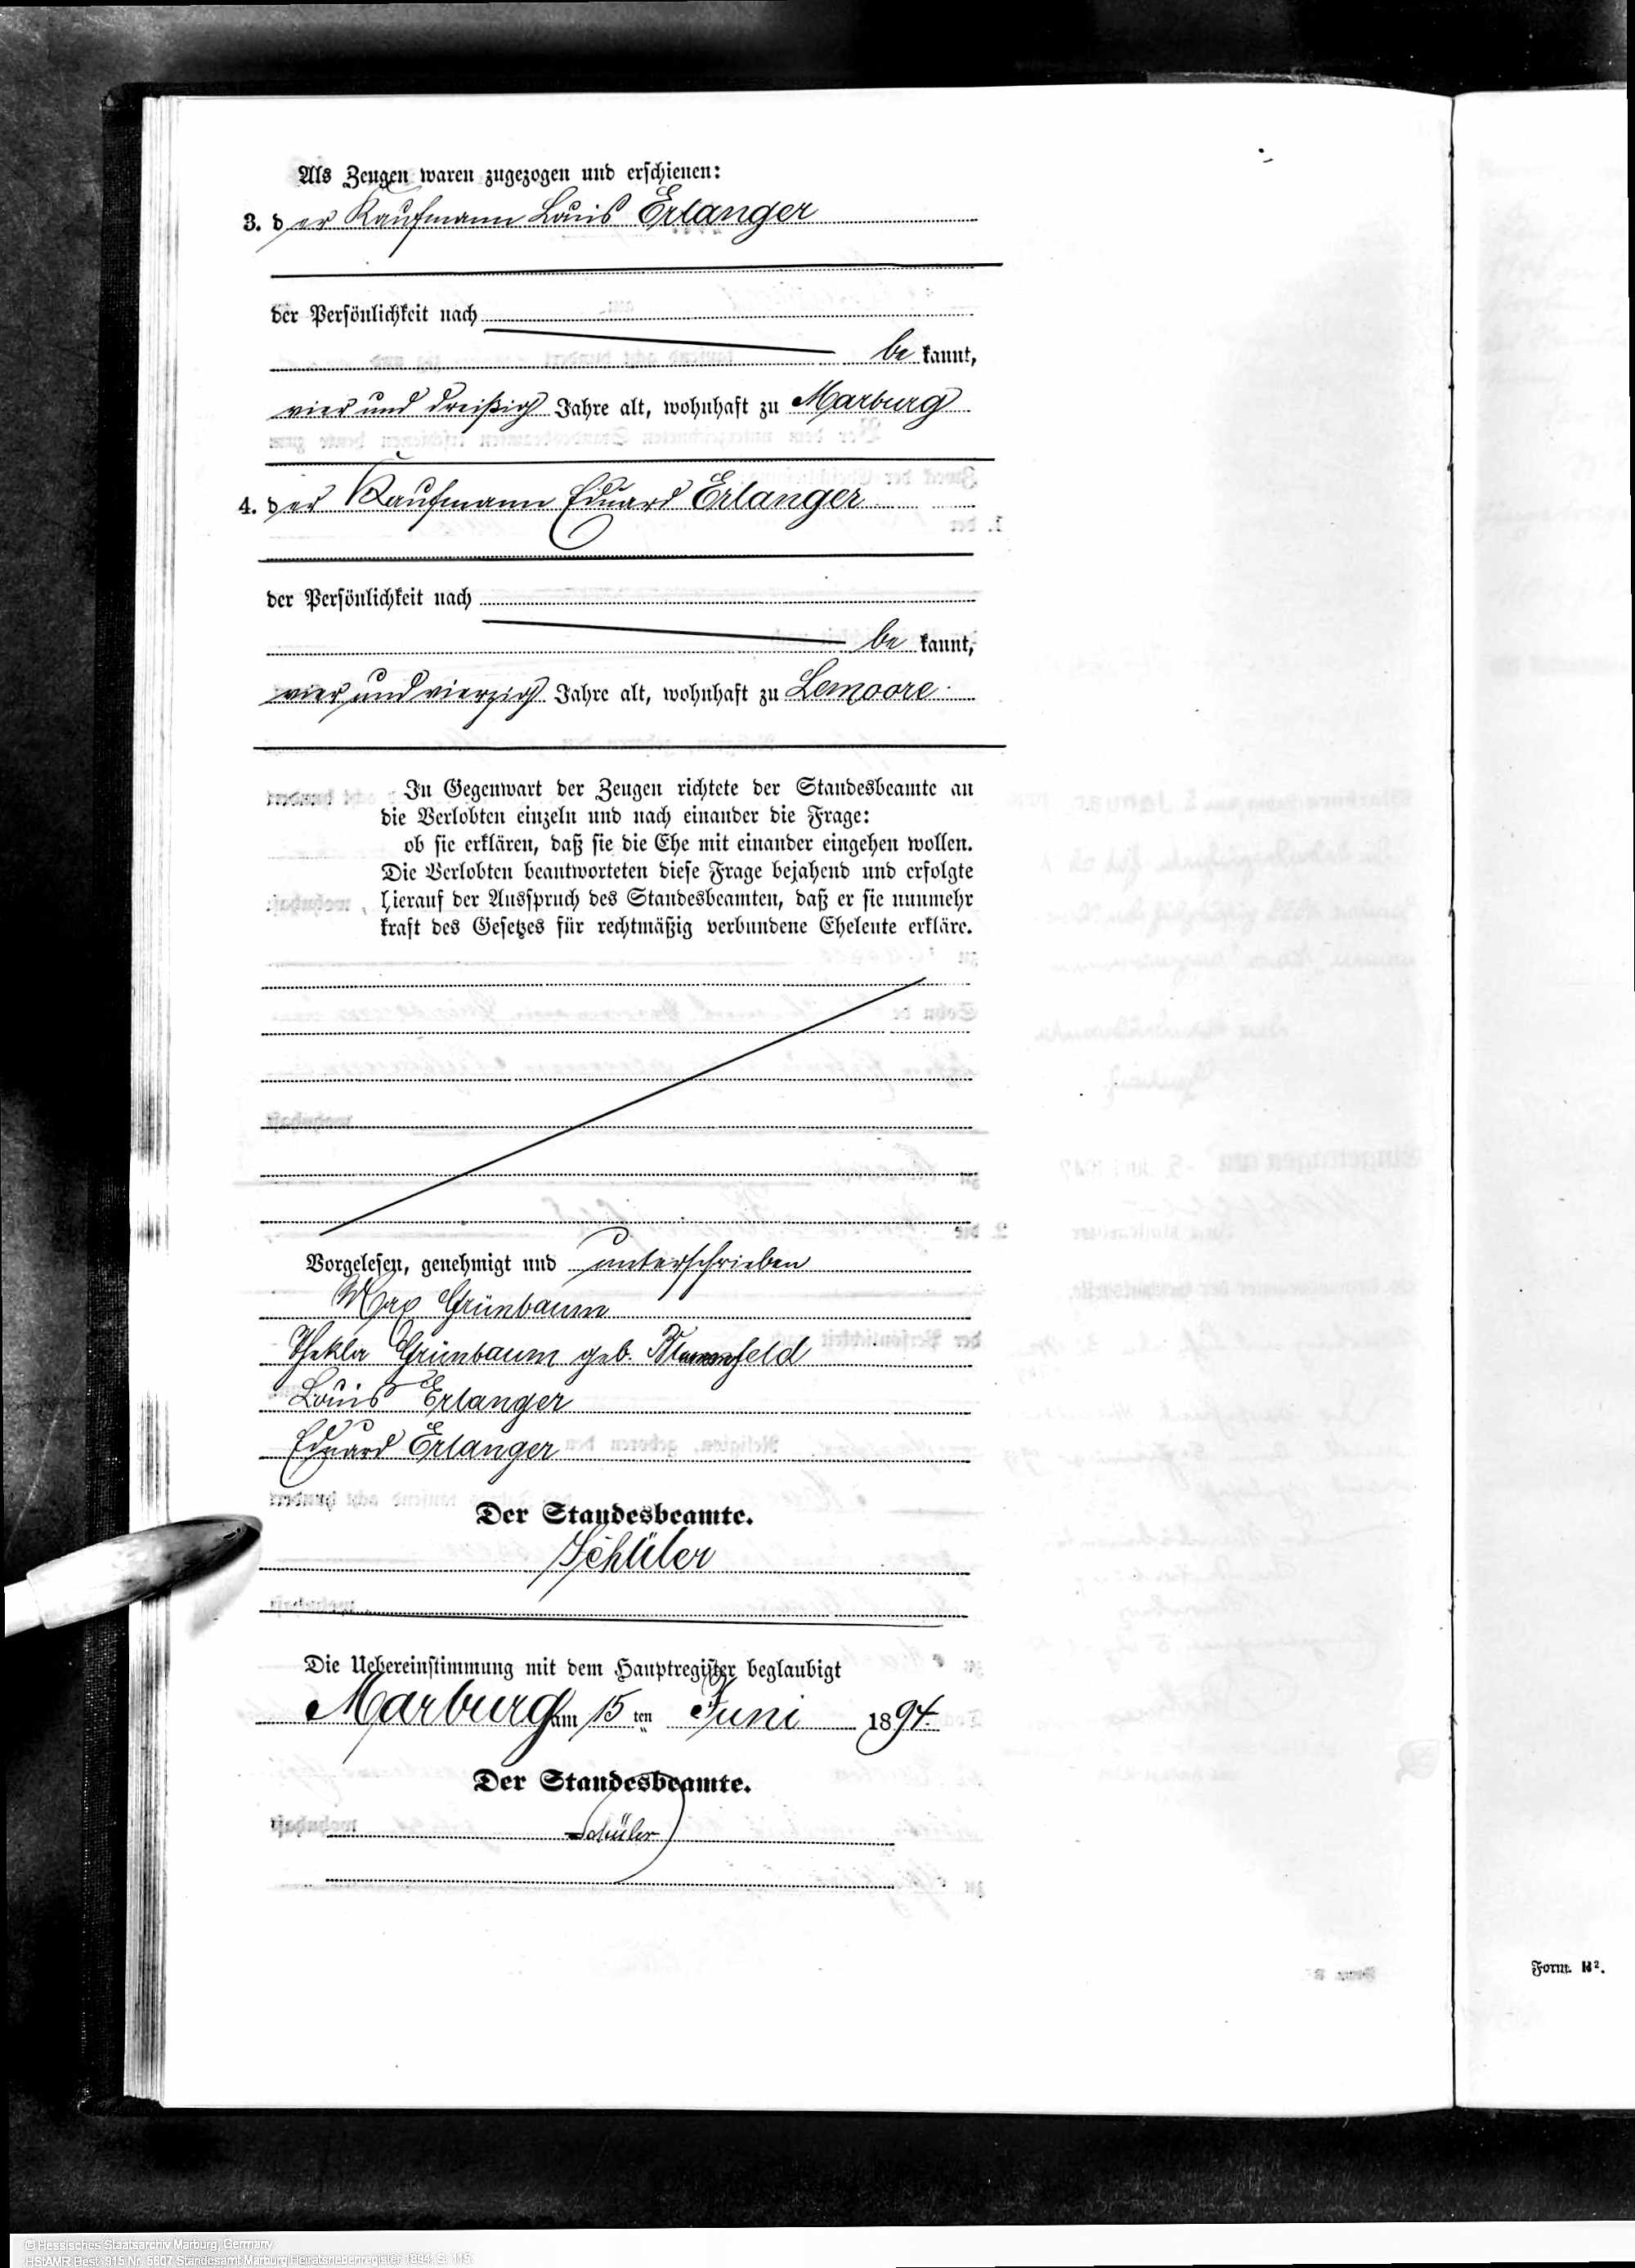 Als Zeugen waren zugezogen und erschienen:
3. der Kaufmann Louis Erlanger
der Persönlichkeit nach
be kannt,
vier und dreißig Jahre alt, wohnhaft zu Marburg
4. der Kaufmann Eduard Erlanger
der Persönlichkeit nach
be kannt,
vier und vierzig Jahre alt, wohnhaft zu Lemoore
In Gegenwart der Zeugen richtete der Standesbeamte an
die Verlobten einzeln und nach einander die Frage:
ob sie erklären, daß sie die Ehe mit einander eingehen wollen.
Die Verlobten beantworteten diese Frage bejahend und erfolgte
hierauf der Ausspruch des Standesbeamten, daß er sie nunmehr
kraft des Gesetzes für rechtmäßig verbundene Eheleute erkläre.
Vorgelesen, genehmigt und unterschrieben
Max Grünbaum
Thekla Grünbaum geb. Blumenfeld
Louis Erlanger
Eduard Erlanger
Der Standesbeamte.
Schüler
Die Uebereinstimmung mit dem Hauptregister beglaubigt
Marburg am 15 ten Juni 1894.
Der Standesbeamte.
Schüler
Form. B².
© Hessisches Staatsarchiv Marburg, Germany
HStAMR Best. 915 Nr. 5607 Standesamt Marburg Heiratsnebenregister 1894, S. 115